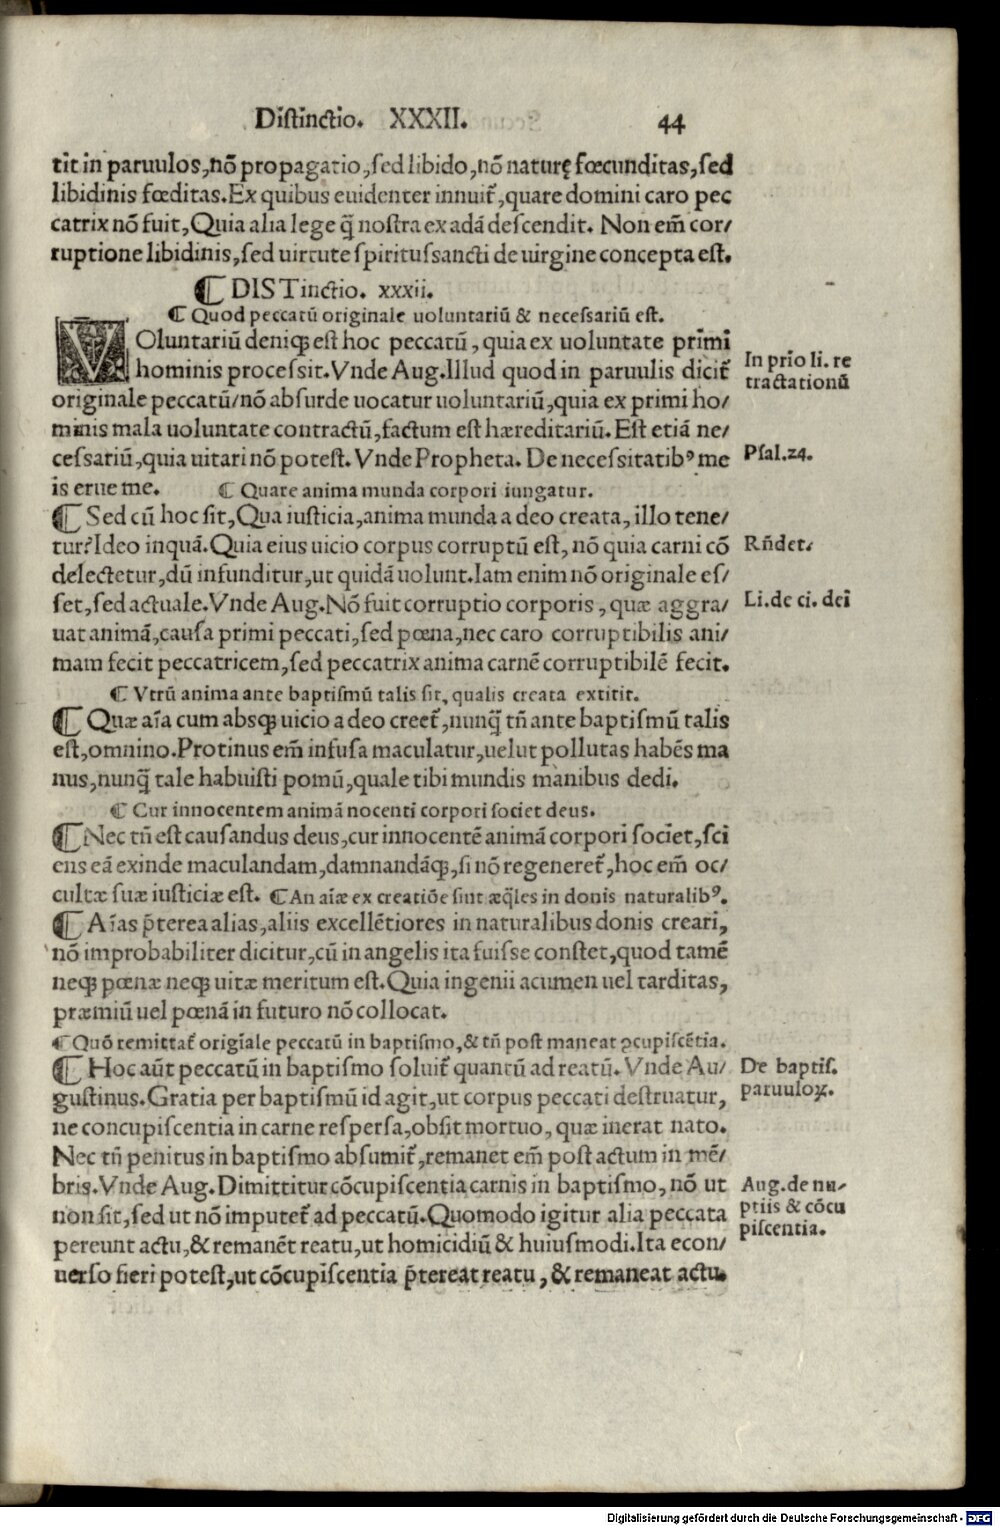 Distinctio. XXXII. 44
tit in paruulos, nō propagatio, sed libido, nō naturę fœcunditas, sed
libidinis fœditas. Ex quibus euidenter innuit᷑, quare domini caro pec
catrix nō fuit, Quia alia lege q̄ nostra ex adā descendit. Non em̄ cor/
ruptione libidinis, sed uirtute spiritussancti de uirgine concepta est.
¶ DISTinctio. xxxii.
¶ Quod peccatū originale uoluntariū & necessariū est.
VOluntariū deniqꝫ est hoc peccatū, quia ex uoluntate primi
hominis processit. Vnde Aug. Illud quod in paruulis dicit᷑
In prio li. re
tractationū
originale peccatū/ nō absurde uocatur uoluntariū, quia ex primi ho/
minis mala uoluntate contractū, factum est hæreditariū. Est etiā ne/
cessariū, quia uitari nō potest. Vnde Propheta. De necessitatibꝰ me
Psal.24.
is erue me. ¶ Quare anima munda corpori iungatur.
¶ Sed cū hoc sit, Qua iusticia, anima munda a deo creata, illo tene/
tur? Ideo inquā. Quia eius uicio corpus corruptū est, nō quia carni cō
Rn̄det.
delectetur, dū infunditur, ut quidā uolunt. Iam enim nō originale es/
set, sed actuale. Vnde Aug. Nō fuit corruptio corporis, quæ aggra/
Li. de ci. dei
uat animā, causa primi peccati, sed pœna, nec caro corruptibilis ani/
mam fecit peccatricem, sed peccatrix anima carnē corruptibilē fecit.
¶ Vtrū anima ante baptismū talis sit, qualis creata extitit.
¶ Quæ aīa cum absqꝫ uicio a deo creet᷑, nunq̄ tn̄ ante baptismū talis
est, omnino. Protinus em̄ infusa maculatur, uelut pollutas habēs ma
nus, nunq̄ tale habuisti pomū, quale tibi mundis manibus dedi.
¶ Cur innocentem animā nocenti corpori societ deus.
¶ Nec tn̄ est causandus deus, cur innocentē animā corpori societ, sci
ens eā exinde maculandam, damnandāqꝫ, si nō regeneret᷑, hoc em̄ oc/
cultæ suæ iusticiæ est. ¶ An aīæ ex creatiōe sint æq̄les in donis naturalibꝰ.
¶ Aīas p̄terea alias, aliis excellētiores in naturalibus donis creari,
nō improbabiliter dicitur, cū in angelis ita fuisse constet, quod tamē
neqꝫ pœnæ neqꝫ uitæ meritum est. Quia ingenii acumen uel tarditas,
præmiū uel pœnā in futuro nō collocat.
¶ Quō remittat᷑ origīale peccatū in baptismo, & tn̄ post maneat ꝯcupiscētia.
¶ Hoc aūt peccatū in baptismo soluit᷑ quantū ad reatū. Vnde Au/
De baptis.
paruuloꝝ.
gustinus. Gratia per baptismū id agit, ut corpus peccati destruatur,
ne concupiscentia in carne respersa, obsit mortuo, quæ inerat nato.
Nec tn̄ penitus in baptismo absumit᷑, remanet em̄ post actum in mē/
bris. Vnde Aug. Dimittitur cōcupiscentia carnis in baptismo, nō ut
Aug. de nu/
ptiis & cōcu
piscentia.
non sit, sed ut nō imputet᷑ ad peccatū. Quomodo igitur alia peccata
pereunt actu, & remanēt reatu, ut homicidiū & huiusmodi. Ita econ/
uerso fieri potest, ut cōcupiscentia p̄tereat reatu, & remaneat actu.
Digitalisierung gefördert durch die Deutsche Forschungsgemeinschaft - DFG